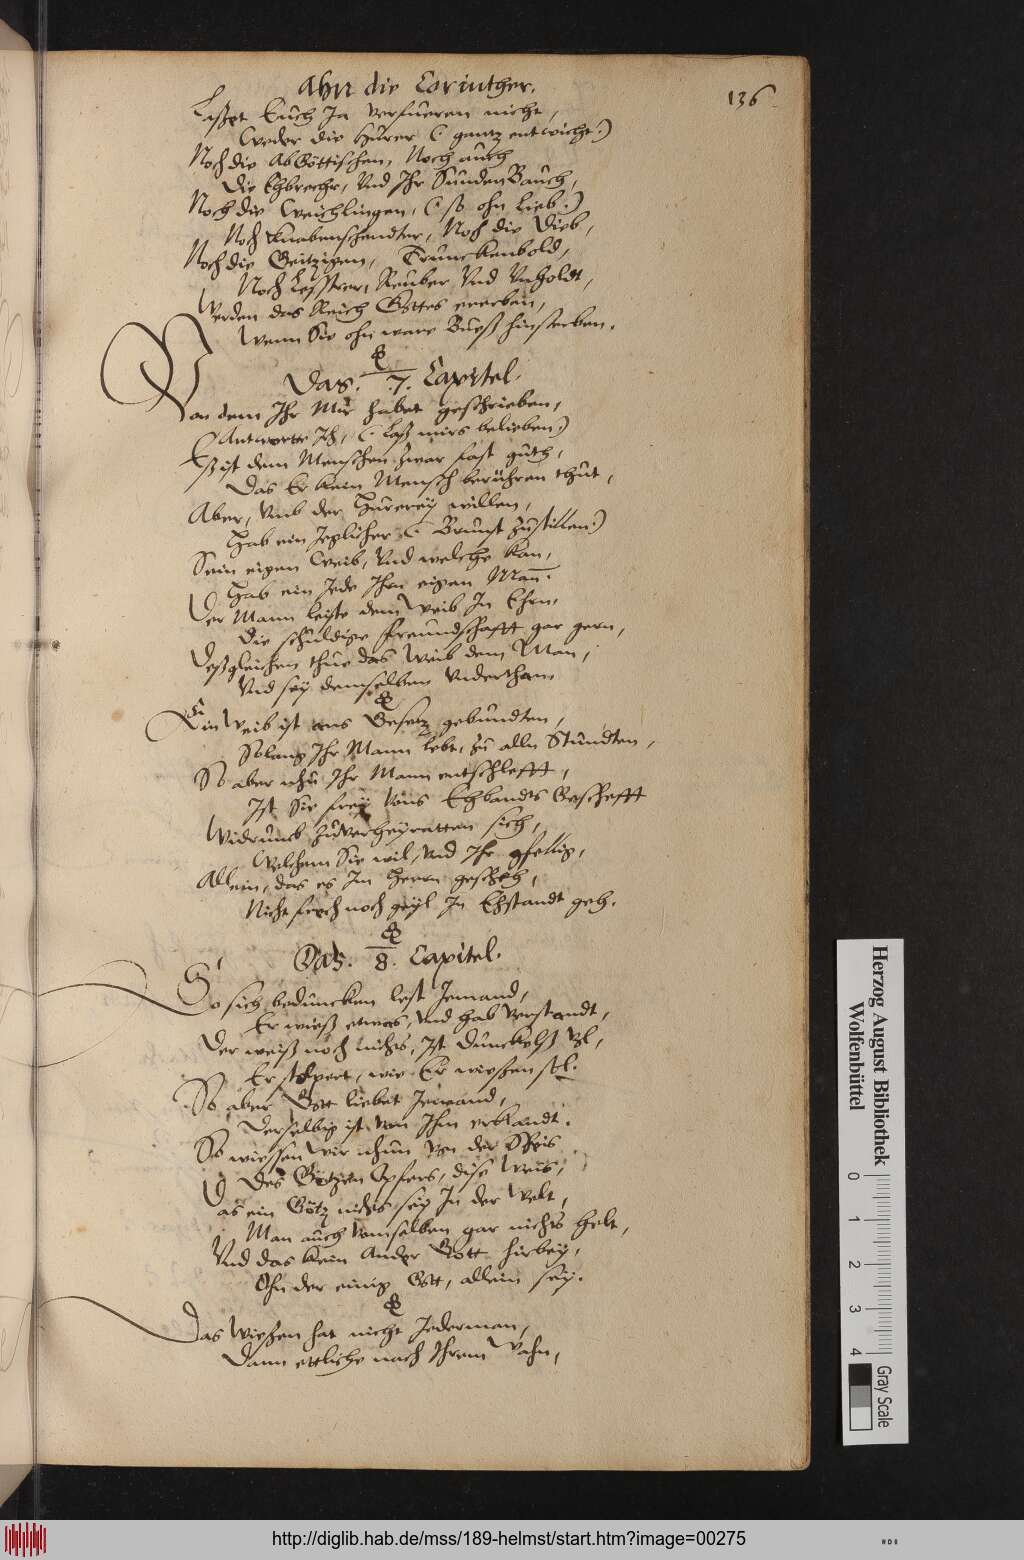 Ahn die Corinther.
136
Lasset Euch Jn verfueren nicht,
Weder die Hurer (: gantz entwicht:)
Noch die AbGöttischen, Noch auch
Die Ehbrecher, Vnd Ihr SundenBauch,
Noch die Weichlingen, (: so ohn Lieb:)
Noch Knabenschendter, Noch die Dieb,
Noch die Geitzigen, Trunckenbold,
Noch Lesstrer, Reuber Vnd Vnholdt,
Werden das Reich Gottes ererben,
Wenn Sie ohn ware Bueß hinsterben.
Das. 7. Capitel.
Von dem Ihr Mir habet geschrieben,
Antworte Ich, (: Laß mirs belieben:)
Eß ist dem Menschen zwar fast guth,
Das Er kein Mensch berühren thut,
Aber, Vmb der Hurerey willen,
Hab ein Jeglicher (: Brunst zustillen:)
Sein eigen Weib, Vnd welche kan,
Hab ein Jede Ihrn eigen Man̄.
Der Mann leiste dem Weib In Ehrn,
Die schuldige freundschafft gar gern,
Deßgleichen thue das Weib dem Man,
Vnd sey demselben Vnderthan
Ein Weib ist ans Gesetz gebundten,
Solang Ihr Mann lebt, zu alln Stundten,
So aber nhu Ihr Mann entschlefft,
Ist Sie frey Vons Ehbandts Geschefft
Widrumb zuverheyratten sich,
Welchem Sie wil, Vnd Ihr gfellig,
Allein, das es Im Herrn gescheh,
Nicht frech noch geyl In Ehstandt geh.
Das. 8. Capitel.
So sich beduncken lest Jemand,
Er wieß etwas, Vnd hab verstandt,
Der weiß noch nichts, Ist Dunckelß Vol,
Er, wie Er wießen sol.
So aber Gott liebet Jemand,
Derselbig ist von Ihm erkandt.
So wissen wir nhun von der Speis
Des Götzen Opfers, dise Weis,
Das ein Götz nichts sey In der Welt,
Man auch Vomselben gar nichts helt,
Vnd das kein Ander Gott hirbey,
Ohn der einig Gott, allein sey.
Das Wießen hat nicht Jederman,
Dann ettliche nach Ihrem Wahn,
Herzog August Bibliothek
Wolfenbüttel
0 1 2 3 4
Gray Scale
http://diglib.hab.de/mss/189-helmst/start.htm?image=00275